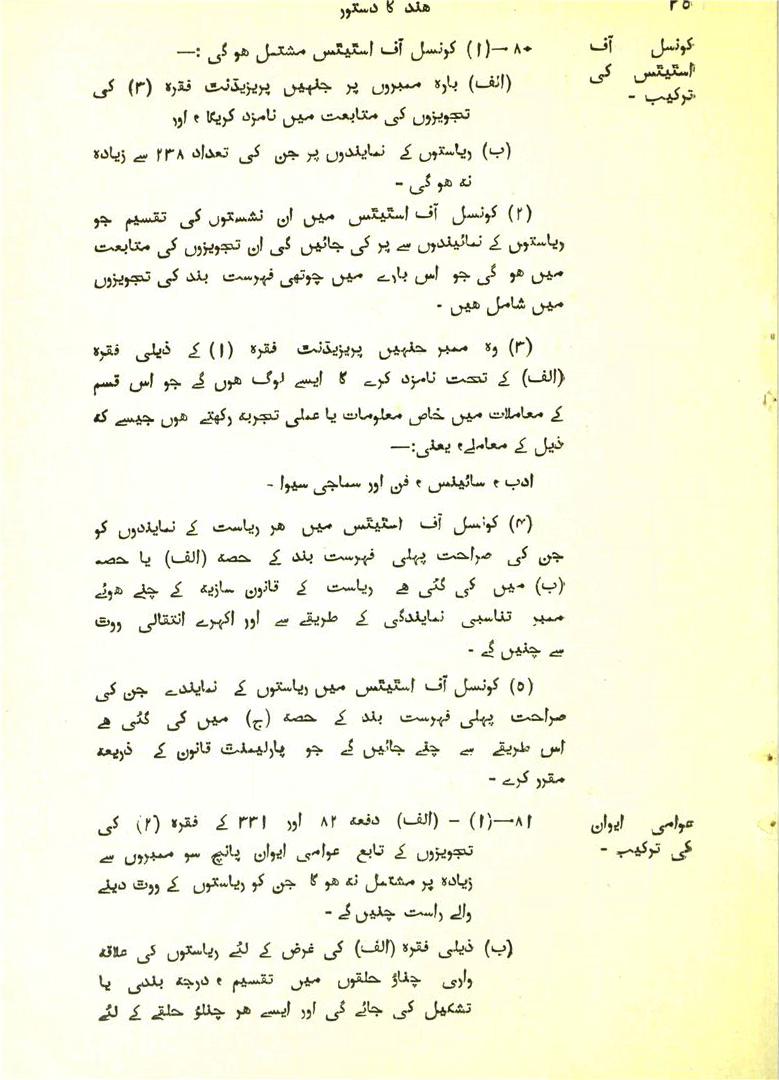 هند کا دستور
۳۵
کونسل آف
اسٹیٹس کی
ترکیب -
۸۰—(۱) کونسل آف اسٹیٹس مشتمل ہو گی :—
(الف) بارہ ممبروں پر جنہیں پریزیڈنٹ فقرہ (۳) کی
تجویزوں کی متابعت میں نامزد کریگا ، اور
(ب) ریاستوں کے نمایندوں پر جن کی تعداد ۲۳۸ سے زیادہ
نہ ہو گی -
(۲) کونسل آف اسٹیٹس میں ان نشستوں کی تقسیم جو
ریاستوں کے نمائیندوں سے پر کی جائیں گی ان تجویزوں کی متابعت
میں ہو گی جو اس بارے میں چوتھی فہرست بند کی تجویزوں
میں شامل ہیں -
(۳) وہ ممبر جنہیں پریزیڈنٹ فقرہ (۱) کے ذیلی فقرہ
(الف) کے تحت نامزد کرے گا ایسے لوگ ہوں گے جو اس قسم
کے معاملات میں خاص معلومات یا عملی تجربہ رکھتے ہوں جیسے کہ
ذیل کے معاملے ، یعنی:—
ادب ، سائینس ، فن اور سماجی سیوا -
(۴) کونسل آف اسٹیٹس میں ہر ریاست کے نمایندوں کو
جن کی صراحت پہلی فہرست بند کے حصہ (الف) یا حصہ
(ب) میں کی گئی ہے ریاست کے قانون سازیہ کے چنے ہوئے
ممبر تناسبی نمایندگی کے طریقے سے اور اکہرے انتقالی ووٹ
سے چنیں گے -
(۵) کونسل آف اسٹیٹس میں ریاستوں کے نمایندے جن کی
صراحت پہلی فہرست بند کے حصہ (ج) میں کی گئی ہے
اس طریقے سے چنے جائیں گے جو پارلیمنٹ قانون کے ذریعہ
مقرر کرے -
عوامی ایوان
کی ترکیب -
۸۱—(۱) - (الف) دفعہ ۸۲ اور ۳۳۱ کے فقرہ (۲) کی
تجویزوں کے تابع عوامی ایوان پانچ سو ممبروں سے
زیادہ پر مشتمل نہ ہو گا جن کو ریاستوں کے ووٹ دینے
والے راست چنیں گے -
(ب) ذیلی فقرہ (الف) کی غرض کے لئے ریاستوں کی علاقہ
واری چناؤ حلقوں میں تقسیم ، درجہ بندی یا
تشکیل کی جائے گی اور ایسے ہر چناؤ حلقے کے لئے